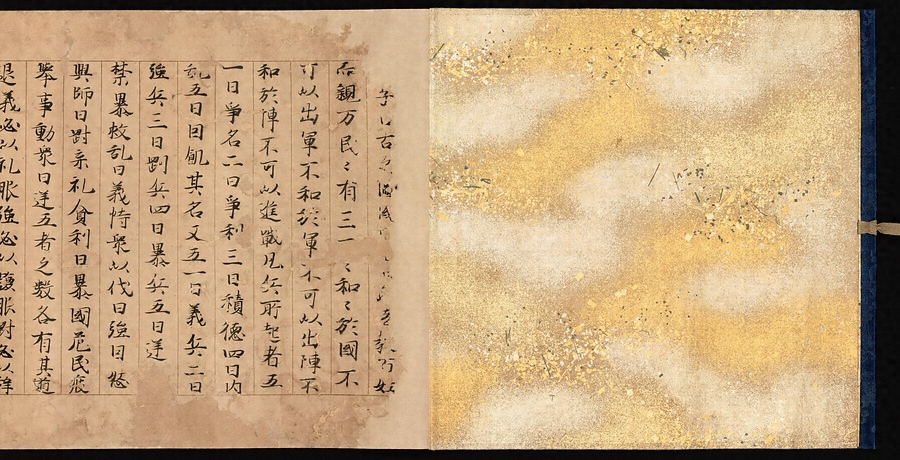 子曰古之
而親万民〻有三一 和〻於國不
可以出軍不和於軍不可以出陣不
和於陣不可以進戰凡兵所起者五
一曰爭名二曰爭利三曰積德四曰内
乱五曰因飢其名又五一曰義兵二曰
強兵三曰剛兵四曰暴兵五曰逆
禁暴救乱曰義恃衆以伐曰強因怒
興師曰剛弃礼貪利曰暴國危民疲
舉事動衆曰逆五者之數各有其道
義必以礼服強必以謙服剛必以辞